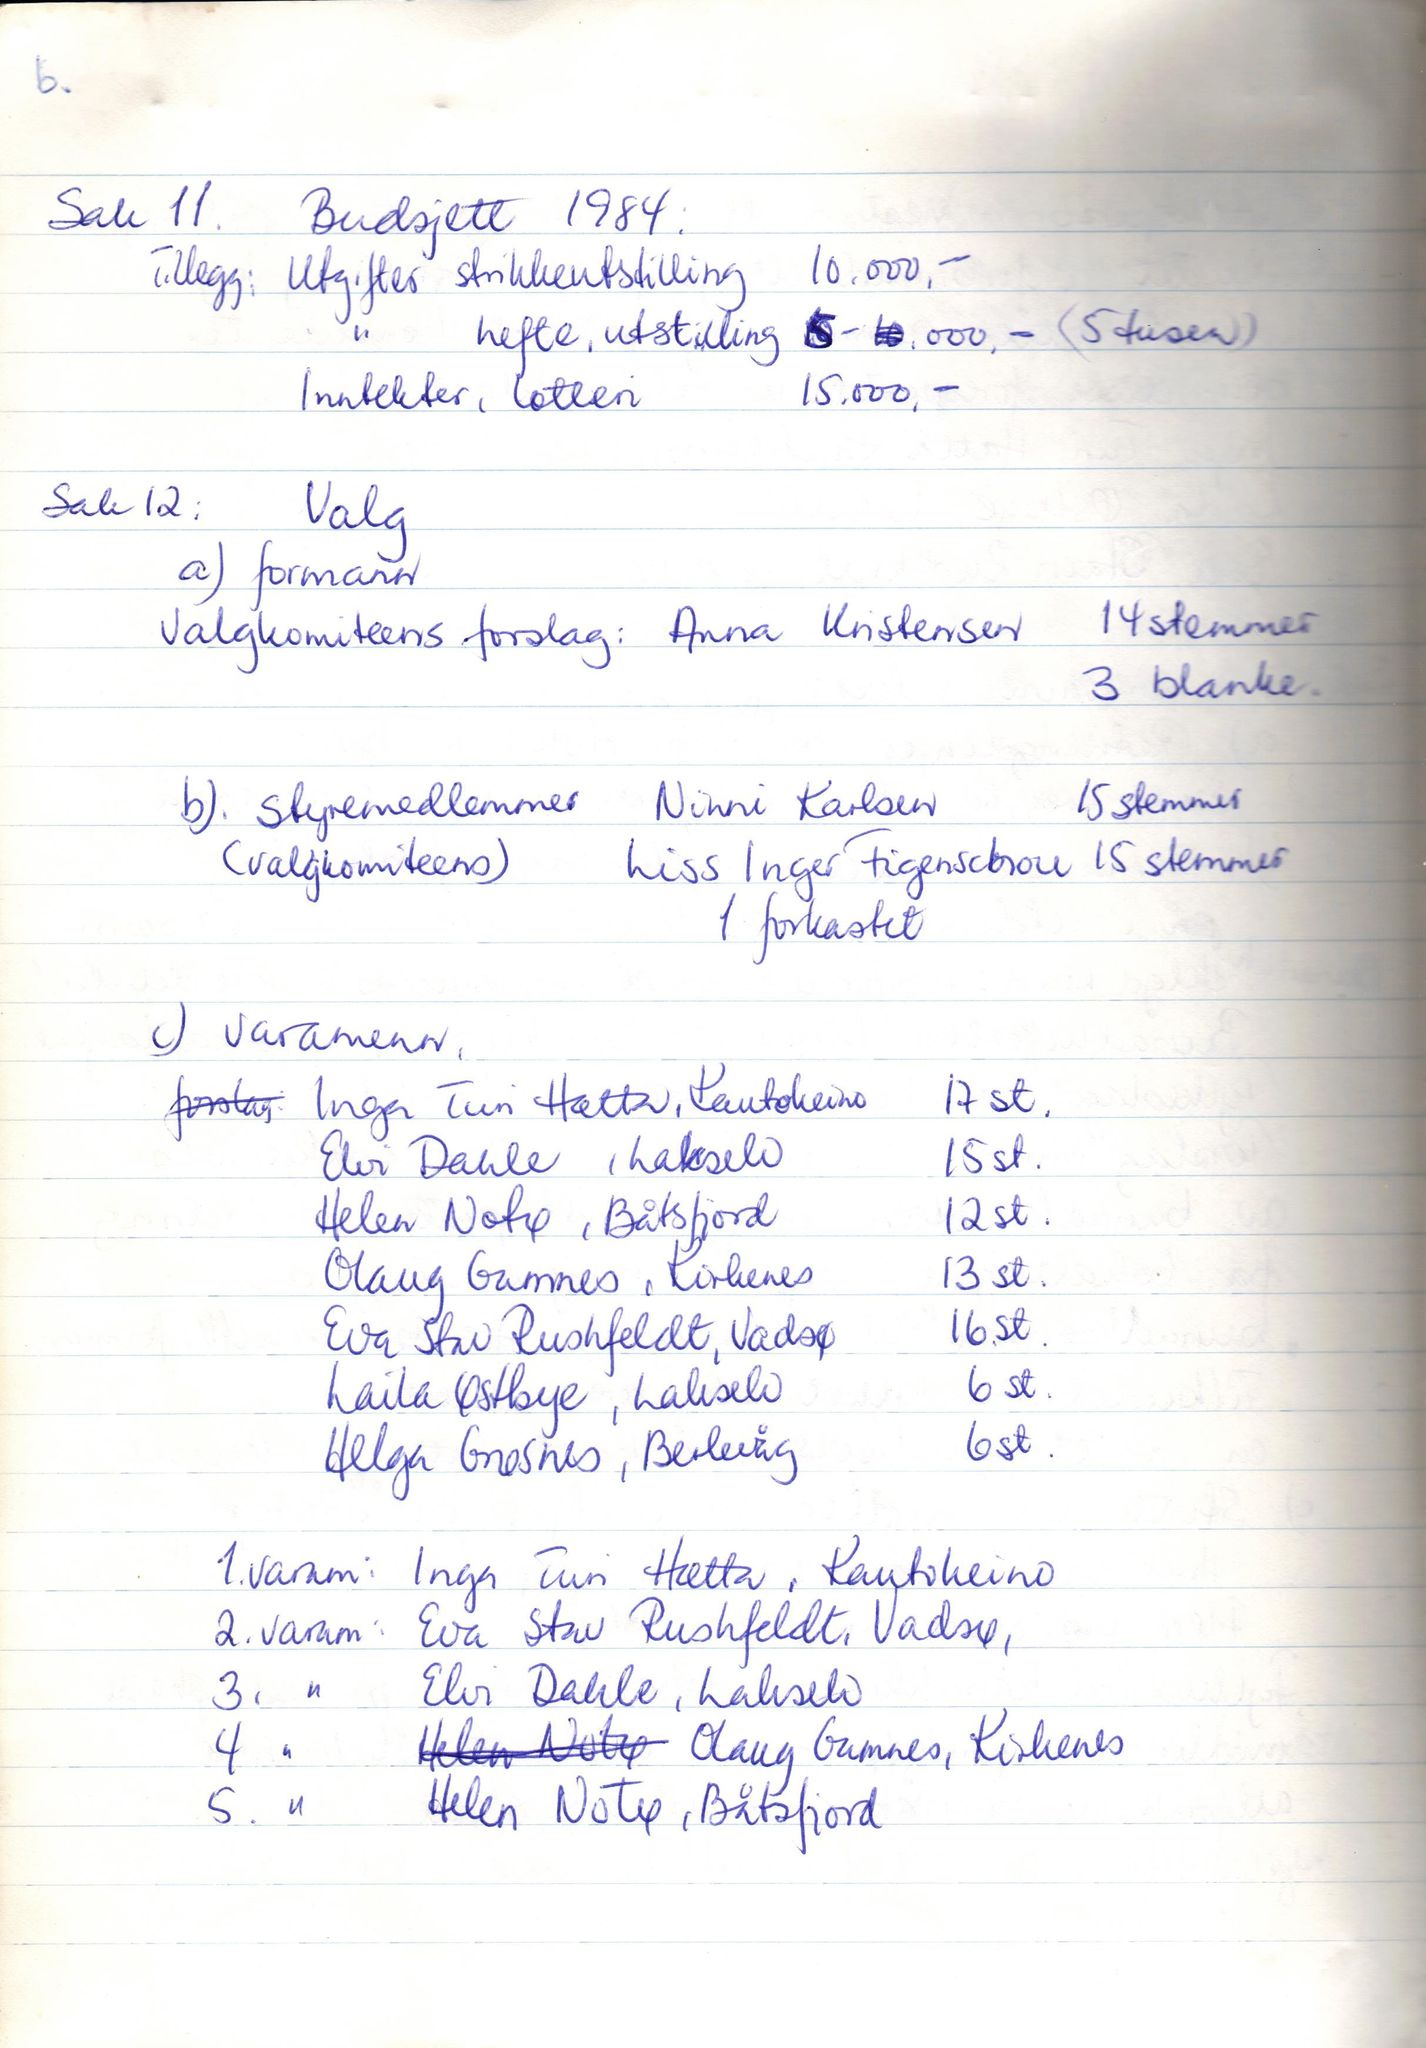 6.
Sak 11. Budsjett 1984:
Tillegg: Utgifter strikkeutstilling 10.000,-
" hefte, utstilling 5-.000,- (5 tusen)
Inntekter, lotteri 15.000,-
Sak 12: Valg
a) formann
Valgkomiteens forslag: Anna Kristensen 14 stemmer
3 blanke.
b). Styremedlemmer Ninni Karlsen 15 stemmer
(valgkomiteens) Liss Inger Figenschou 15 stemmer
1 forkastet
c) Varamenn.
forslag: Inga Turi Hætta, Kautokeino 17 st.
Elvi Dahle, Lakselv 15 st.
Helen Notø, Båtsfjord 12 st.
Olaug Gamnes, Kirkenes 13 st.
Eva Stav Rushfeldt, Vadsø 16 st.
Laila Østbye, Lakselv 6 st.
Helga Grøsnes, Berlevåg 6 st.
1. varam: Inga Turi Hætta, Kautokeino
2. varam: Eva Stav Rushfeldt, Vadsø,
3. " Elvi Dahle, Lakselv
4 " Helen Notø Olaug Gamnes, Kirkenes
5. " Helen Notø, Båtsfjord